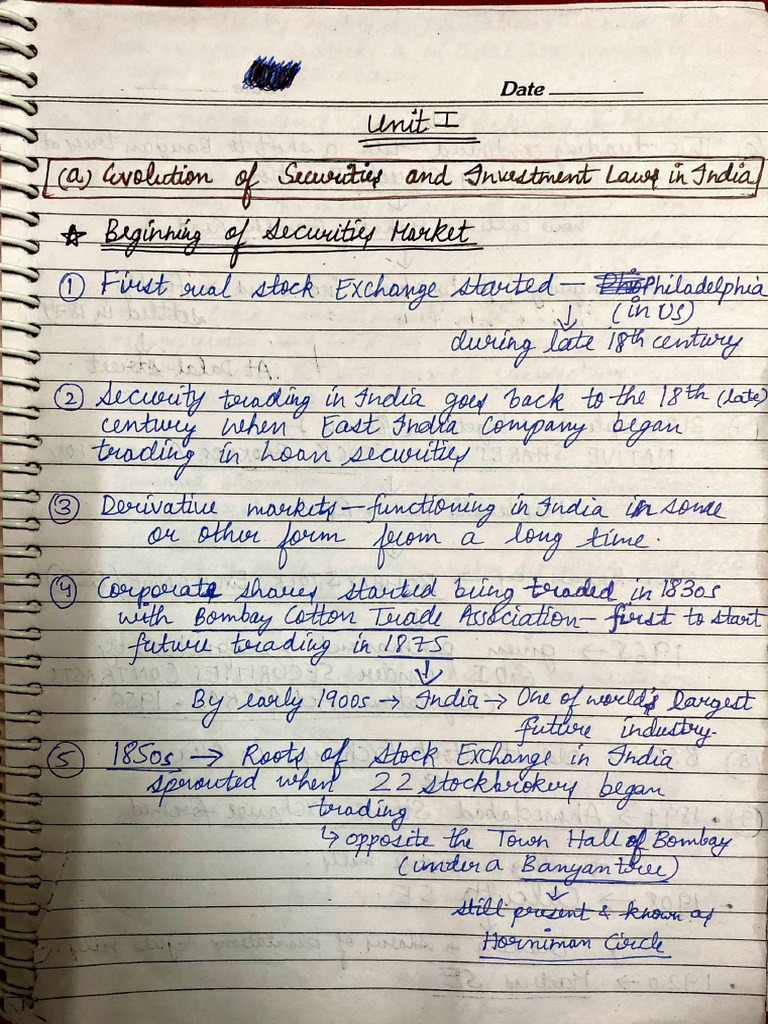 Date
Unit I
(a) Evolution of Securities and Investment Laws in India
☆ Beginning of Securities Market
① First real stock Exchange started — Philadelphia
(in US)
↓
during late 18th century
② Security trading in India goes back to the 18th (late)
century when East India Company began
trading in Loan securities
③ Derivative markets — functioning in India in some
or other form from a long time.
④ Corporate shares started being traded in 1830s
with Bombay Cotton Trade Association — first to start
future trading in 1875
↓
By early 1900s → India → One of world's largest
future industry.
⑤ 1850s → Roots of Stock Exchange in India
sprouted when 22 stockbrokers began
trading
↳ opposite the Town Hall of Bombay
(under a Banyan tree)
↓
still present & known as
Horniman Circle